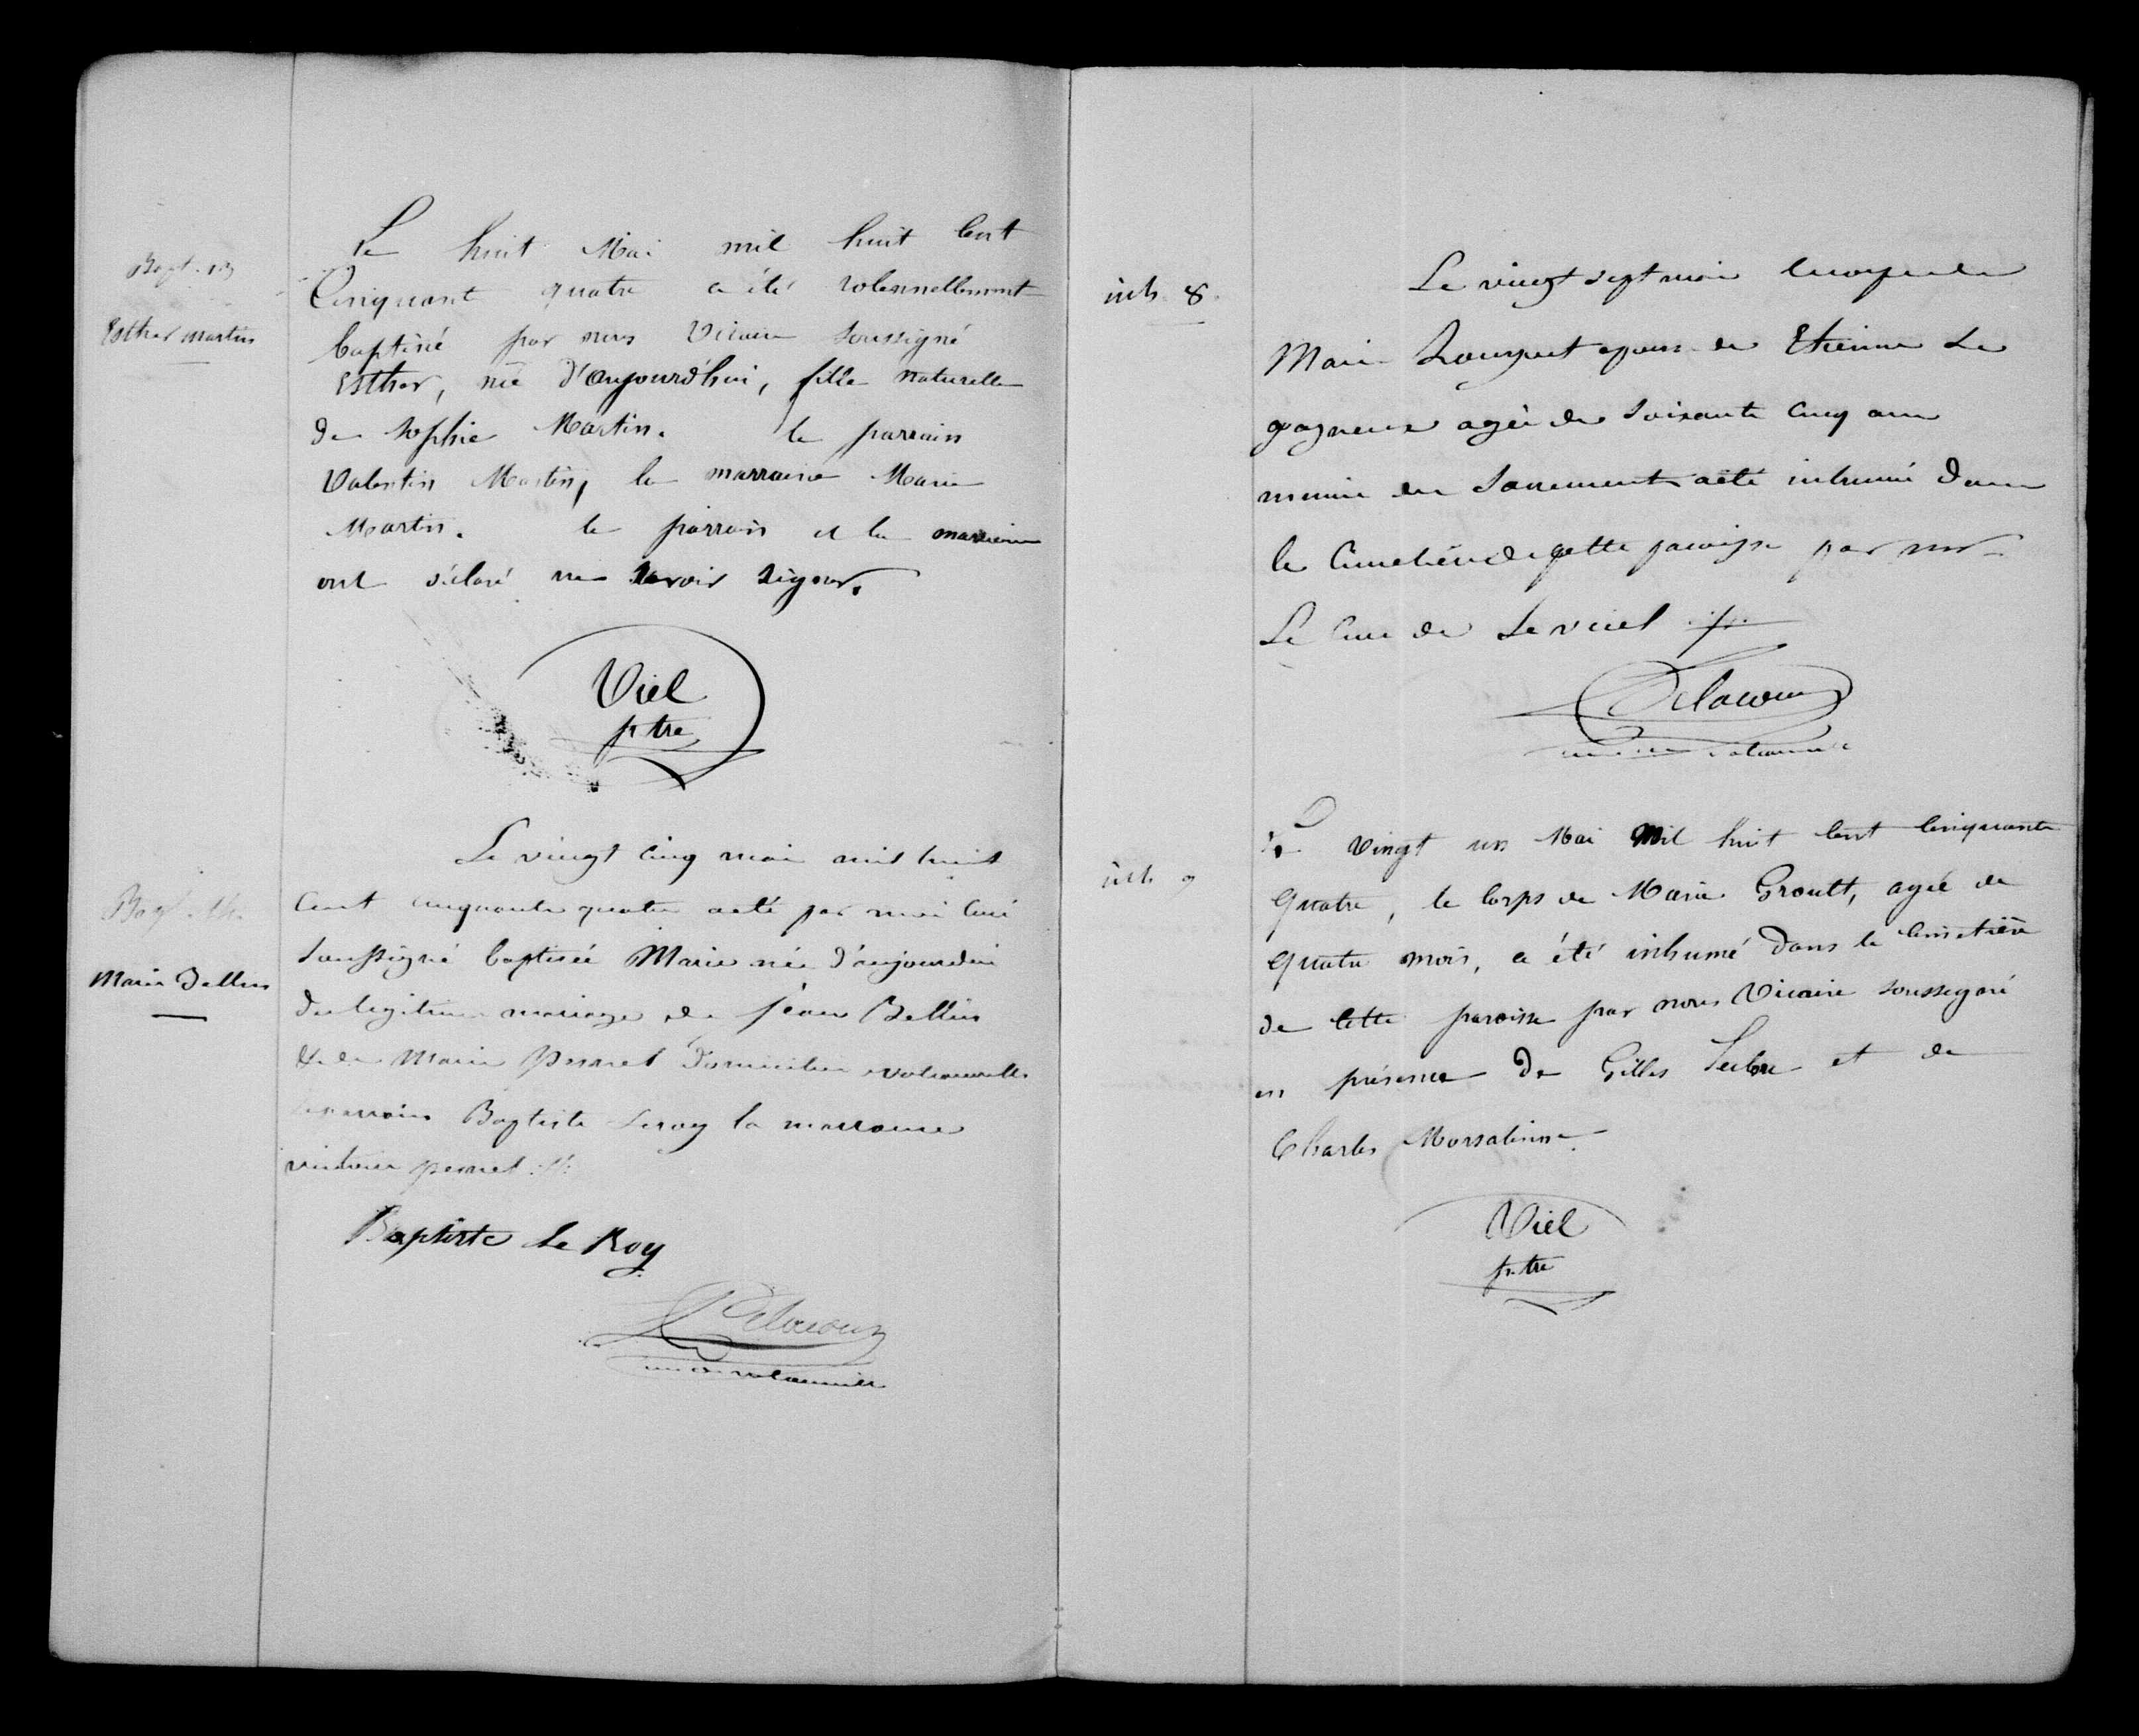 Bapt. 13
Esther Martin
Le huit Mai mil huit Cent
Cinquant quatre a été solennellement
baptisé par nous Vicaire Soussigné
Esther, née d'aujourd'hui, fille naturelle
de Sophie Martin. le parrain
Valentin Martin, la marraine Marie
Martin. le parrain et la marraine
ont déclaré ne savoir signer.
Viel
ptre
Bapt.
Marie Bellin
Le vingt cinq mai mil huit
cent cinquante quatre a été par moi curé
soussigné baptisée Marie née d'aujourdui
du legitime mariage de jean Bellin
& de Marie pesnel domiciliés
le parrain Baptiste Leroy la marraine
pesnel
Baptiste Le Roy
Delacour
inh. 8.
Le vingt sept mai le corps de
Marie epouse de Etienne Le
gagneux agée de soixante cinq ans
munie des Sacrements a été inhumé dans
le Cimetière de cette paroisse par
Le Curé de
Delacour
inh. 9
Le Vingt un Mai Mil huit Cent Cinquante
Quatre, le Corps de Marie Groult, agée de
quatre mois, a été inhumé dans le Cimetière
de Cette paroisse par nous Vicaire soussigné
en présence de Gilles et de
Charles Morsaline.
Viel
ptre